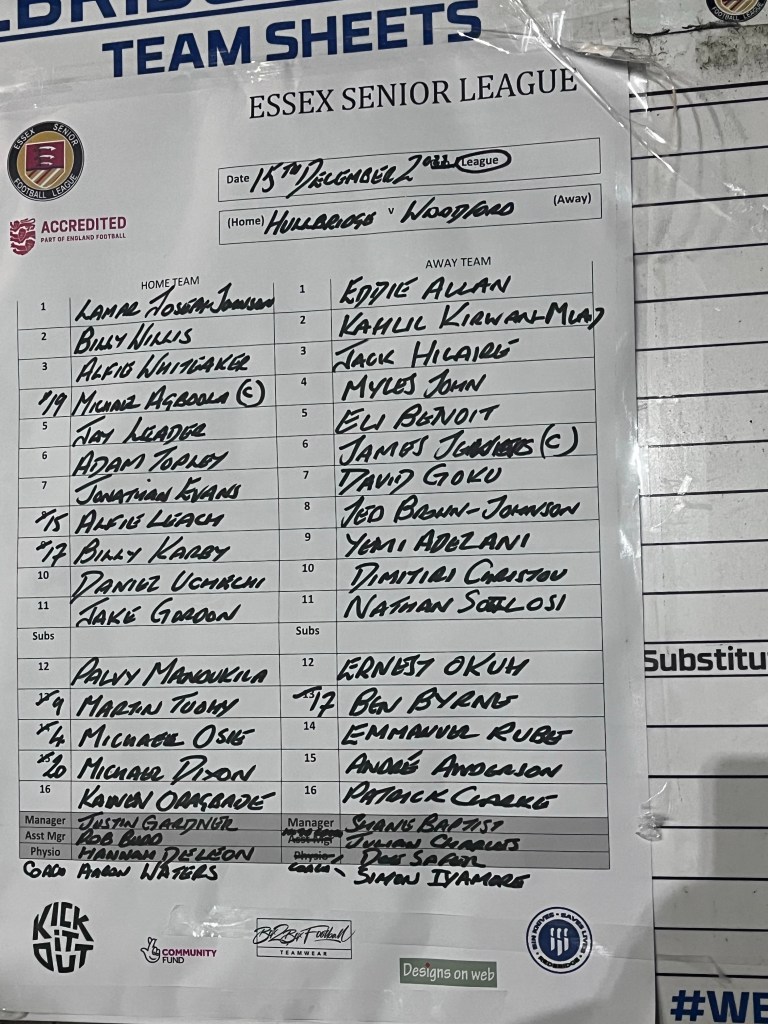 TEAM SHEETS
ESSEX SENIOR LEAGUE
ESSEX SENIOR
FOOTBALL LEAGUE
Date 15TH DECEMBER League
ACCREDITED
PART OF ENGLAND FOOTBALL
(Home) HULLBRIDGE v WOODFORD (Away)
HOME TEAM AWAY TEAM
1 LAMAR JOSEPH-JOHNSON 1 EDDIE ALLAN
2 BILLY WILLIS 2 KAHLIL KIRWAN-
3 ALFIE WHITEAKER 3 JACK HILAIRE
19 MICHAEL AGBOOLA (C) 4 MYLES JOHN
5 JAY LEADER 5 ELI BENOIT
6 ADAM TOPLEY 6 JAMES (C)
7 JONATHAN EVANS 7 DAVID GOKU
15 ALFIE LEACH 8 JED BROWN-JOHNSON
17 BILLY KARBY 9 YEMI ADELANI
10 DANIEL UCHECHI 10 DIMITIRI CHRISTOU
11 JAKE GORDON 11 NATHAN
Subs Subs
12 MANOUKILA 12 ERNEST OKUH
9 MARTIN TUOHY 17 BEN BYRNE
4 MICHAEL OSIE 14 EMMANUEL RUBE
20 MICHAEL DIXON 15 ANDRÉ ANDERSON
16 ORAGBADE 16 PATRICK CLARKE
Manager JUSTIN GARDNER Manager SHANE BAPTIST
Asst Mgr ROB BUDD Asst Mgr JULIAN CHARLES
Physio HANNAH DELEON Physio
COACH AARON WATERS COACH SIMON IVAMORE
KICK
IT
OUT
COMMUNITY
FUND
TEAMWEAR
Designs on web
Substitu
#WE